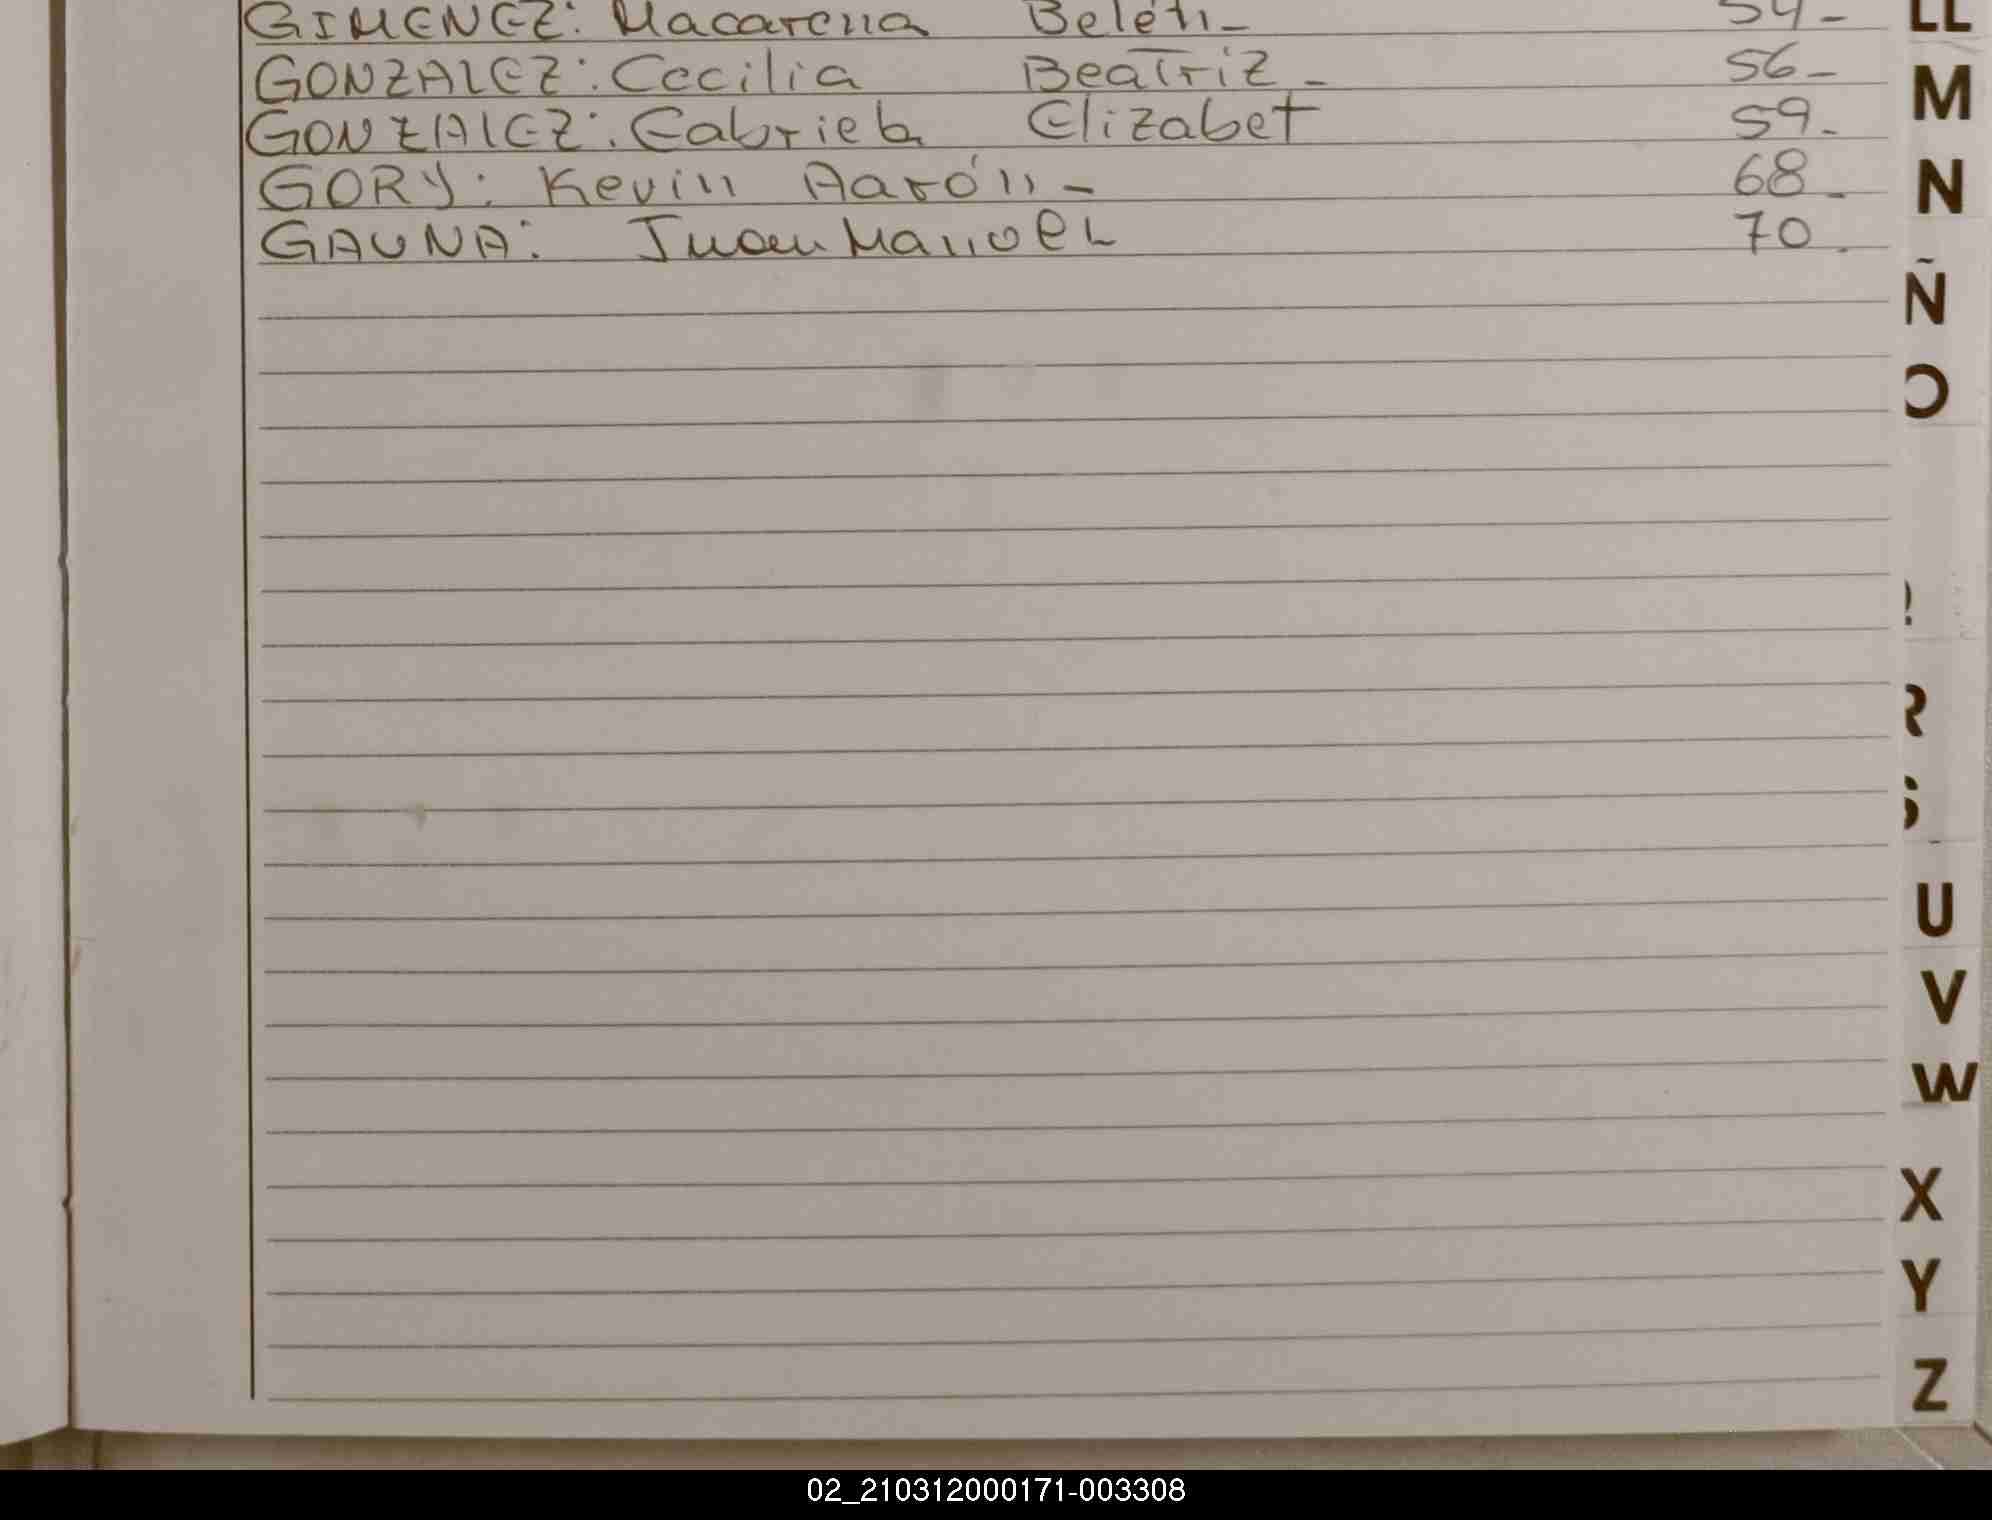 GIMENEZ: Macarena Belén_ 54_
GONZALEZ: Cecilia Beatriz_ 56_
GONZALEZ: Gabriela Elizabet 59_
GORY: Kevin Aarón_ 68_
GAUNA: Juan Manoel 70.
LL
M
N
Ñ
O
R
S
U
V
W
X
Y
Z
02_210312000171-003308